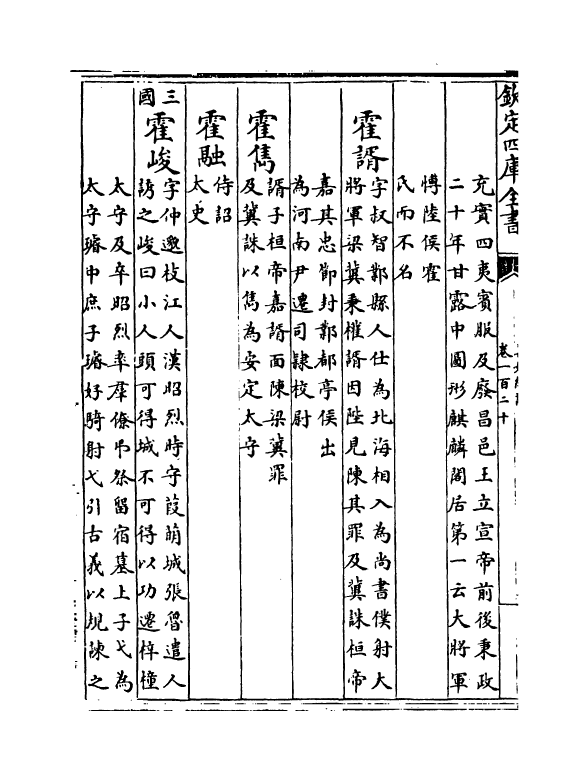 欽定四庫全書
卷一百二十
充實四夷賓服及廢昌邑王立宣帝前後秉政
二十年甘露中圖形麒麟閣居第一云大將軍
博陸侯霍
氏而不名
霍諝
字叔智鄴縣人仕為北海相入為尚書僕射大
將軍梁冀秉權諝因陛見陳其罪及冀誅桓帝
嘉其忠節封鄴都亭侯出
為河南尹遷司隸校尉
霍儁
諝子桓帝嘉諝面陳梁冀罪
及冀誅以儁為安定太守
霍融
待詔
太史
三國
霍峻
字仲邈枝江人漢昭烈時守葭萌城張魯遣人
誘之峻曰小人頭可得城不可得以功遷梓橦
太守及卒昭烈率羣僚弔祭留宿墓上子弋為
太守璿中庶子璿好騎射弋引古義以規諫之